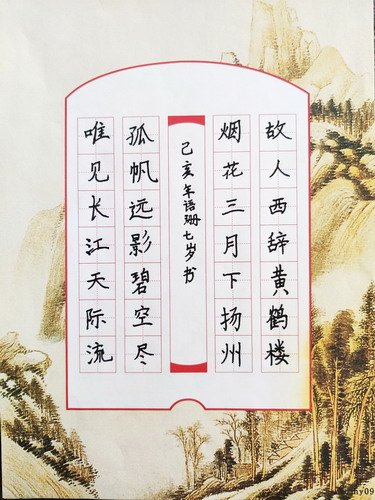 故人西辞黄鹤楼
烟花三月下扬州
己亥年语珊七岁书
孤帆远影碧空尽
唯见长江天际流